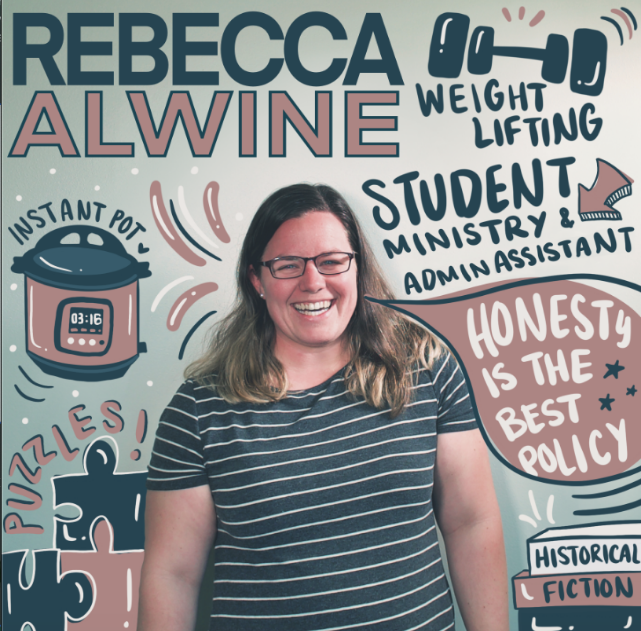 REBECCA
ALWINE
WEIGHT
LIFTING
STUDENT
MINISTRY &
ADMIN ASSISTANT
INSTANT POT
03:16
HONESTY
IS THE
BEST
POLICY
PUZZLES!
HISTORICAL
FICTION